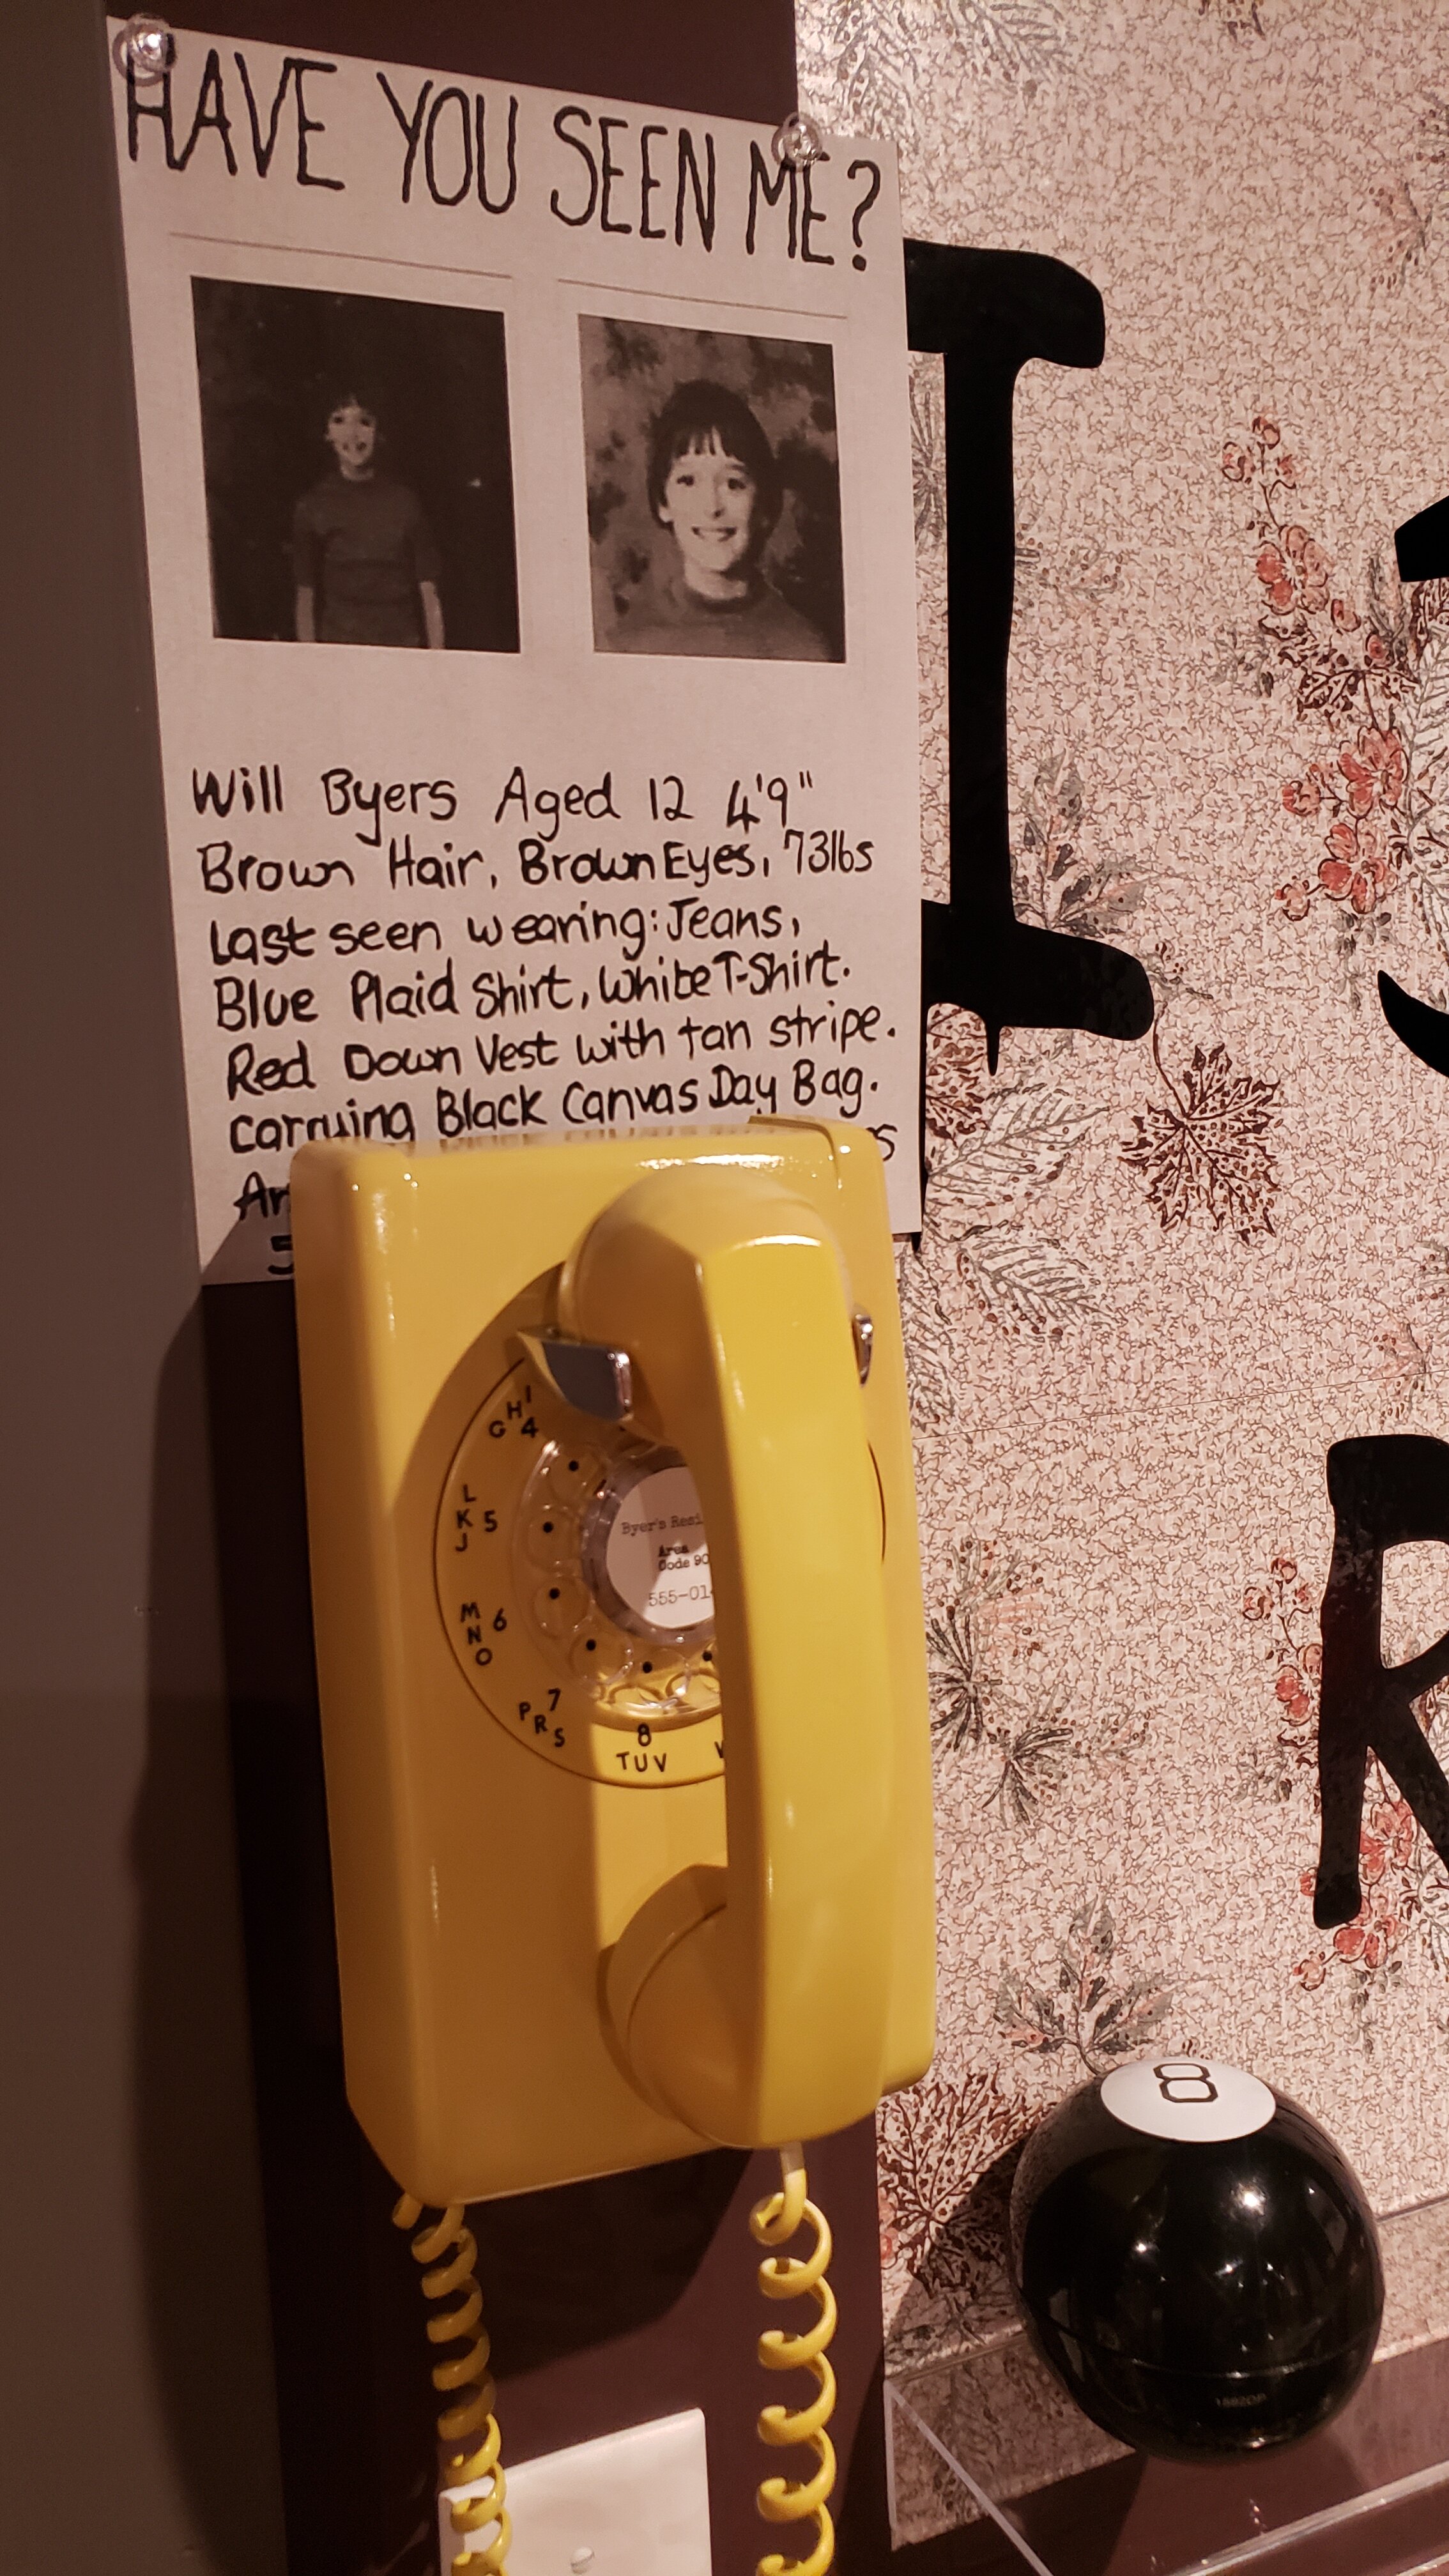 HAVE YOU SEEN ME?
Will Byers Aged 12 4'9"
Brown Hair, Brown Eyes, 73lbs
Last seen wearing: Jeans,
Blue Plaid Shirt, White T-Shirt.
Red Down Vest with tan stripe.
Carrying Black Canvas Day Bag.
I
R
GHI 4
JKL 5
MNO 6
PRS 7
8
TUV
Byer's
Area
Code
8